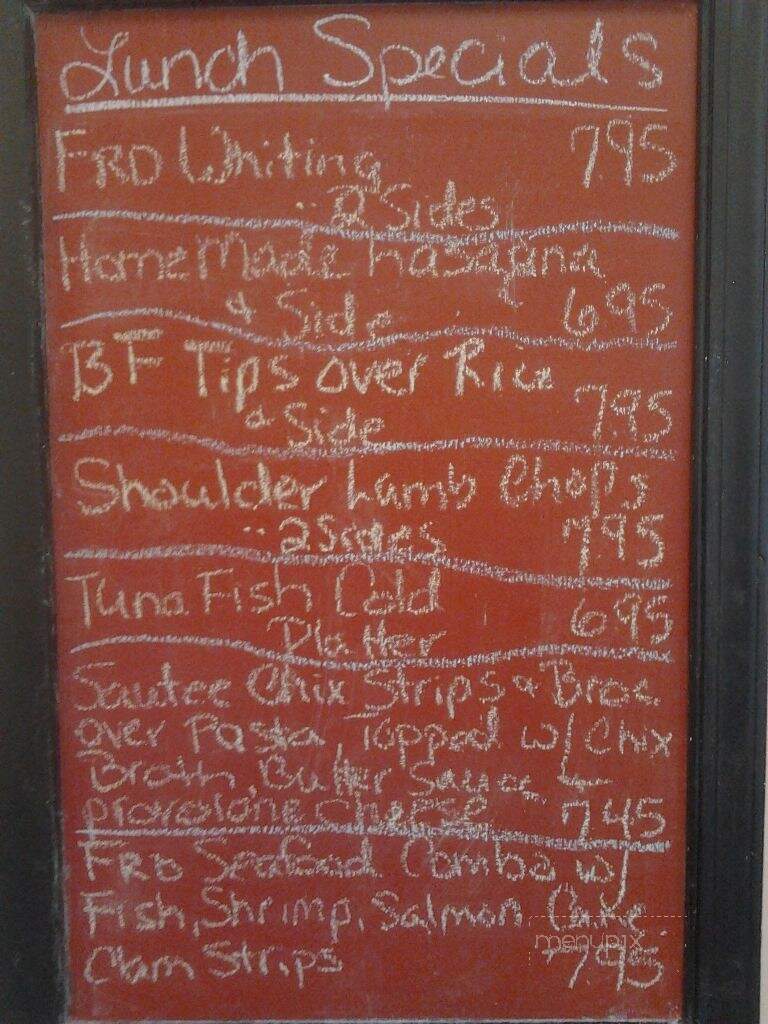 Lunch Specials
FRD Whiting 7.95
2 Sides
HomeMade Lasagna
& Side 6.95
BF Tips over Rice
& Side 7.95
Shoulder Lamb Chops
2 Sides 7.95
Tuna Fish Cold 6.95
Platter
Sautee Chix Strips & Broc
over Pasta Topped w/ Chix
Broth, Butter Sauce
provolone cheese 7.45
FRD Seafood Combo w/
Fish, Shrimp, Salmon Cake
Clam Strips 7.95
menupix